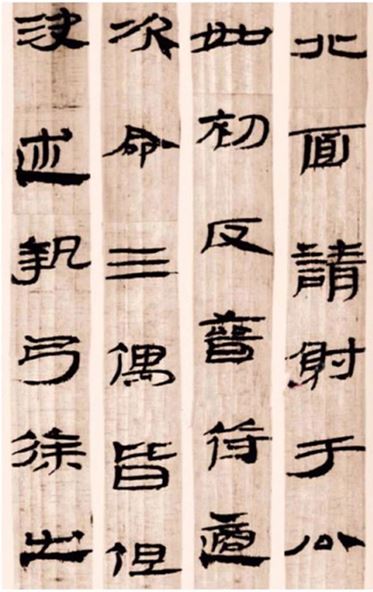 北面請射于公
如初反晉適
次命三偶皆但
決述執弓徐出